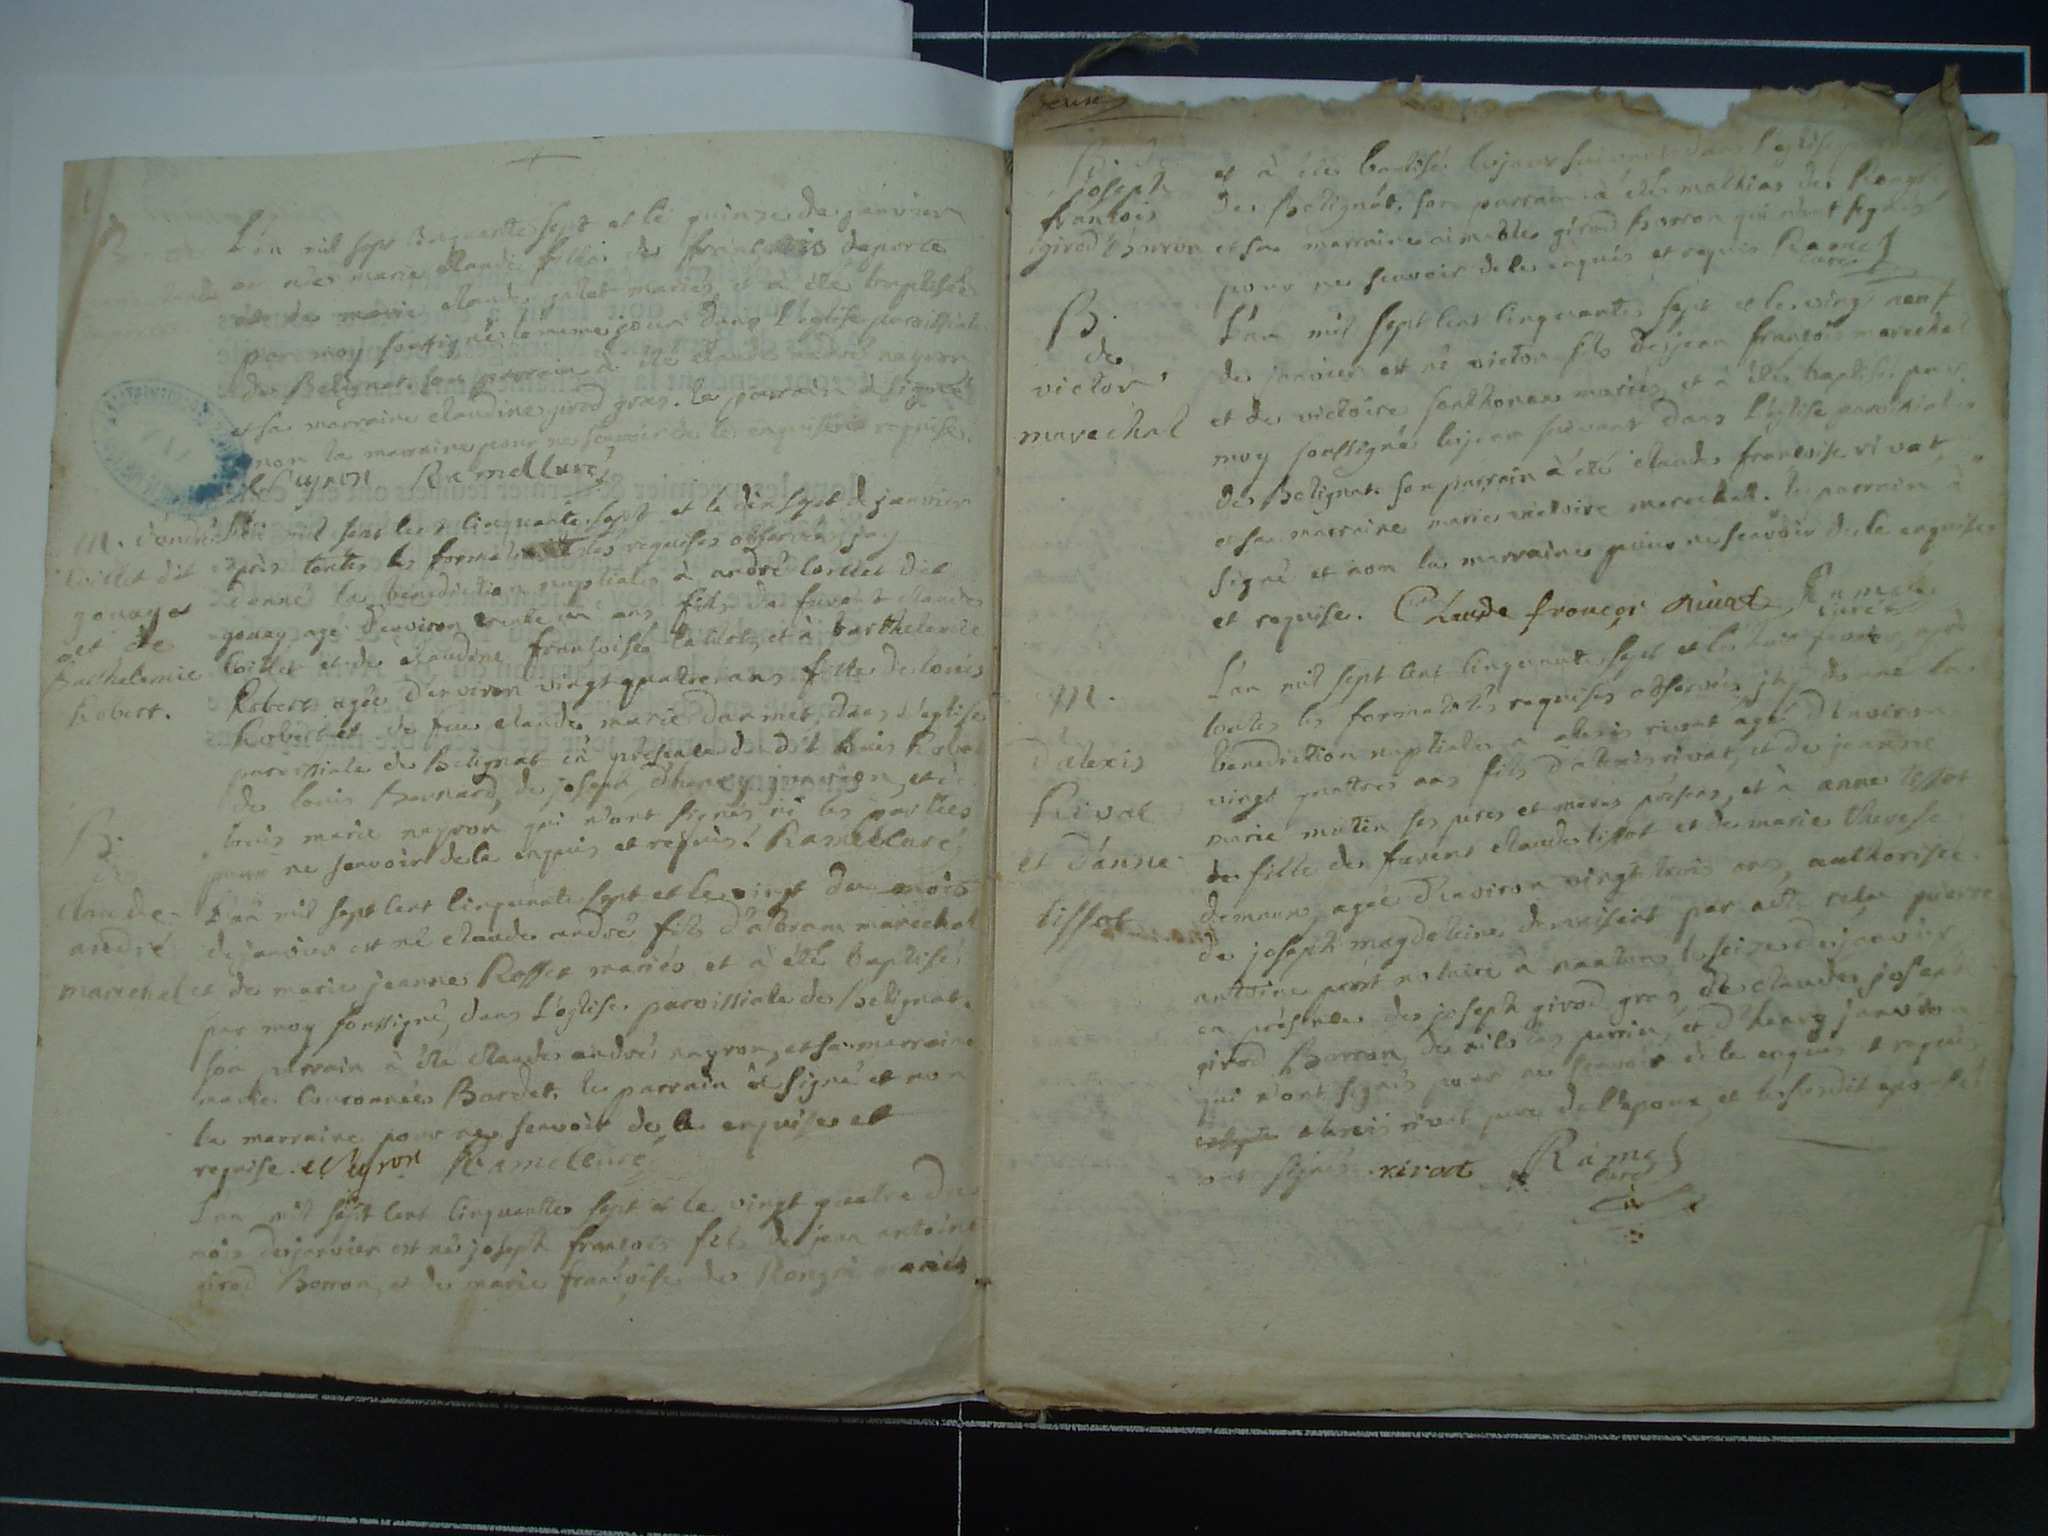 L'an mil sept cinquante sept et le quinze de janvier
est née marie claude fille de françois deporte
et de marie claude jalet mariés, et à été baptisée
par moy soussigné le meme jour dans l'eglise paroissiale
de Belignat. son parrain à été claude andré nayron
et sa marraine claudine girod gros. le parrain à signé
non la marraine pour ne sçavoir de le enquise et requise.
Neyron Ramel Curé
M. d'andré
loillet dit
gouay
et de
Barthelemie
Robert.
L'an mil sept cent cinquante sept et le dix sept de janvier
après toutes les formalités requises observées, jay
donné la benediction nuptiale à andré loillet dit
gouay agé d'environ trente un ans fils de furent claude
loillet et de claudine françoise et à barthelemie
Robert agée d'environ vingt quatre ans fille de louis
Robert et de feue claude marie darmet, dans l'eglise
paroissiale de Belignat en présence du dit louis Robert
de louis Bernard, de joseph d'henry janvion, et de
louis marie nayron qui n'ont signés ni les parties
pour ne sçavoir de le enquis et requis. Ramel Curé
B.
claude
andré
marechal
L'an mil sept cent cinquante sept et le vingt du mois
de janvier est né claude andré fils d'abram marechal
et de marie jeanne Rosset mariés et à été baptisé
par moy soussigné, dans l'eglise paroissiale de Belignat.
son parrain à été claude andré nayron, et sa marraine
marie Couronnée Bordet. le parrain à signé et non
la marraine pour ne sçavoir de le enquise et
requise. Neyron Ramel Curé
L'an mil sept cent cinquante sept et le vingt quatre du
mois de janvier est né joseph françois fils de jean antoine
girod Borron, et de marie françoise des Rongé mariés
joseph
françois
girod borron
et à été baptisé le jour suivant dans l'eglise
de Belignat. son parrain à été mathias des Rongé
et sa marraine aimable girod borron qui n'ont signés
pour ne sçavoir de le enquis et requis Ramel
Curé
B.
de
victor
marechal
L'an mil sept cent cinquante sept et le vingt neuf
de janvier est né victor fils de jean françois marechal
et de victoire santhonax mariés, et à été baptisé par
moy soussigné le jour suivant dans l'eglise paroissiale
de Belignat. son parrain à été claude françois rivat,
et sa marraine marie victoire marechal. le parrain à
signé et non la marraine pour ne sçavoir de le enquise
et requise. Claude françoi Rivat Ramel
Curé
M.
d'alexis
Rivat
et d'anne
tissot
L'an mil sept cent cinquante sept et le huit fevrier, après
toutes les formalités requises observées jay donné la
benediction nuptiale à alexis rivat agé d'environ
vingt quattre ans fils d'alexis rivat, et de jeanne
marie mutin ses peres et meres présens, et à anne tissot
fille de furent claude tissot et de marie therese
agée d'environ vingt trois ans, authorisée
de joseph magdeleine par acte reçu pierre
antoine notaire à nantua le seize de janvier
en présence de joseph girod gros, de claude joseph
girod Borron, de nicolas perrin, et d'henry janvion
qui n'ont signés pour ne sçavoir de le enquis et requis
alexis rivat pere de l'epoux, et le susdit epoux
ont signés. rivat Ramel
Curé